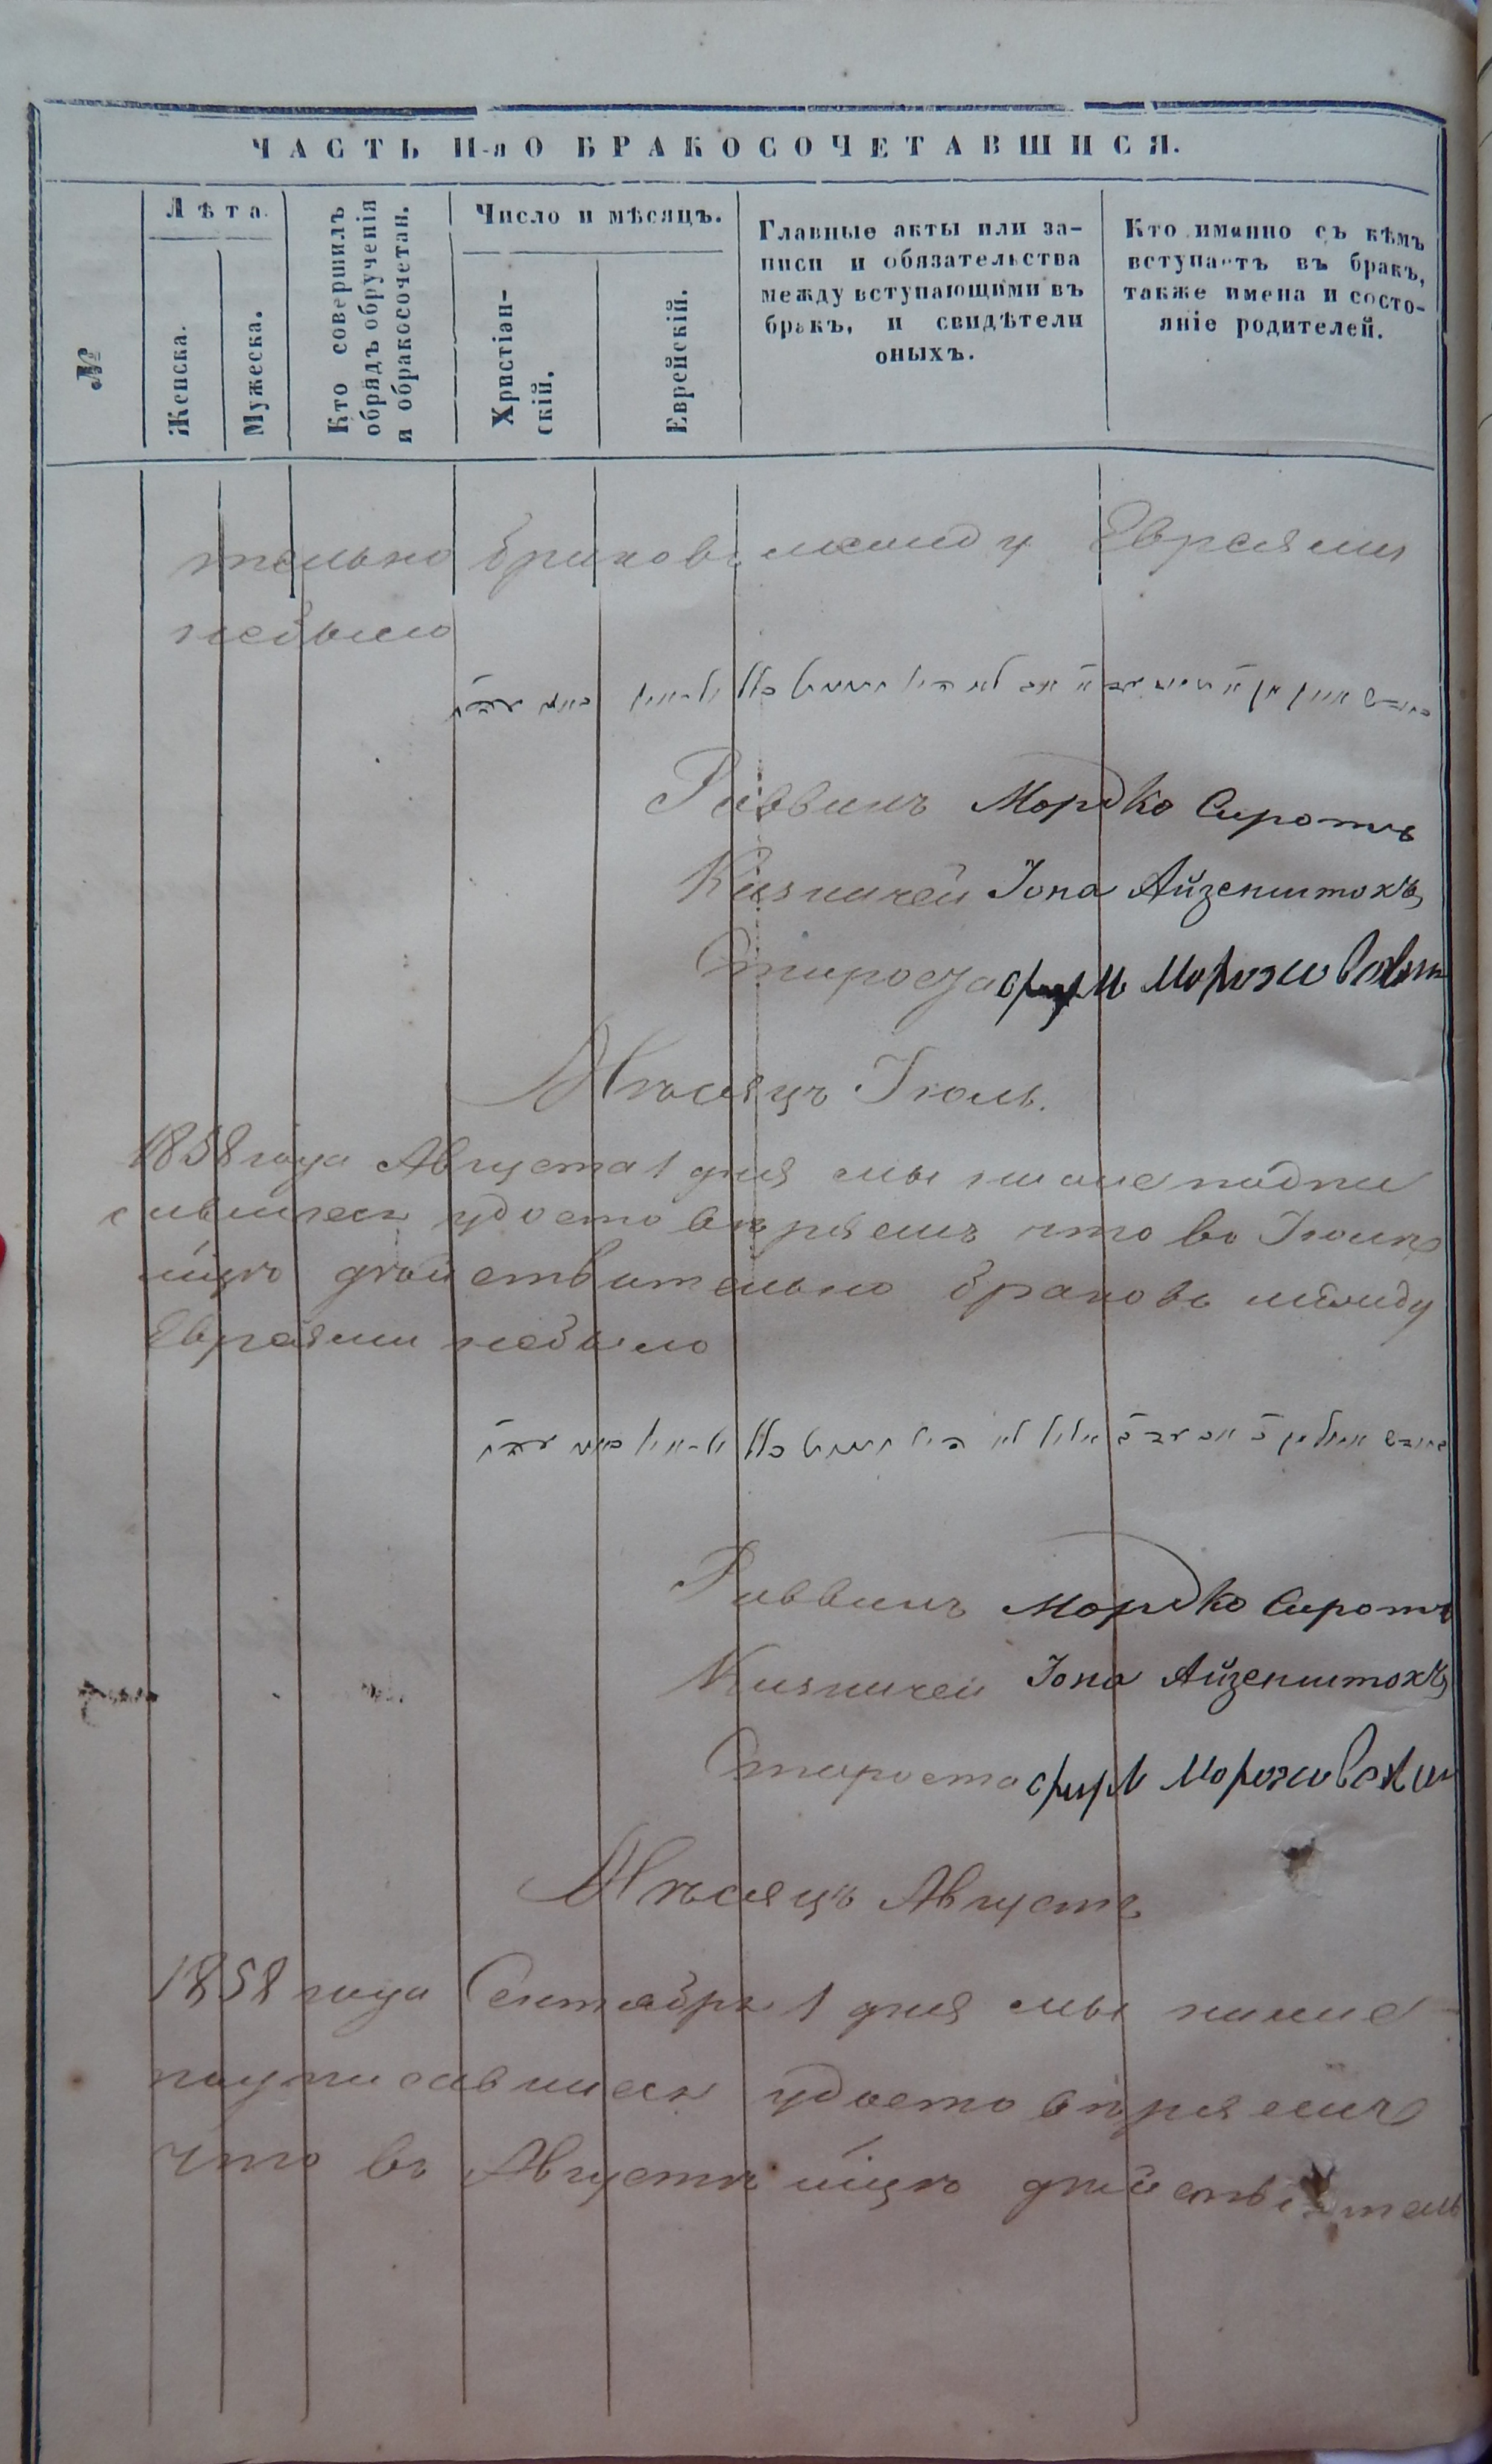 ЧАСТЬ II-я О БРАКОСОЧЕТАВШИСЯ.
№
Лѣта.
Женска.
Мужеска.
Кто совершилъ
обрядъ обрученія
и обракосочетан.
Число и мѣсяцъ.
Христіан-
скій.
Еврейскій.
Главные акты или за-
писи и обязательства
между вступающими въ
бракъ, и свидѣтели
оныхъ.
Кто именно съ кѣмъ
вступаетъ въ бракъ,
также имена и состо-
яніе родителей.
тельно браковъ между Евреями
небыло
Раввинъ Мордко Сиротъ
Казначей Іона Айзенштокъ
Староста Мороховскій
Мѣсяцъ Іюль.
1858 года Августа 1 дня мы ниже подпи
савшіеся удостовѣряемъ что во Іюлѣ
мцѣ дѣйствительно браковъ между
Евреями небыло
Раввинъ Мордко Сиротъ
Казначей Іона Айзенштокъ
Староста Мороховскій
Мѣсяцъ Августъ
1858 года Сентября 1 дня мы ниже
подписавшіеся удостовѣряемъ
что въ Августѣ мцѣ дѣйствитель